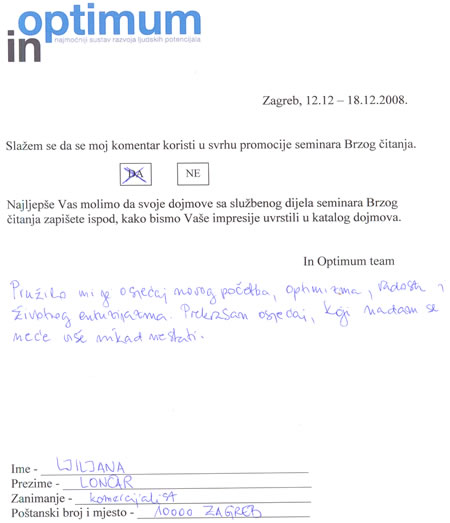 in optimum
najmoćniji sustav razvoja ljudskih potencijala
Zagreb, 12.12 – 18.12.2008.
Slažem se da se moj komentar koristi u svrhu promocije seminara Brzog čitanja.
DA NE
Najljepše Vas molimo da svoje dojmove sa službenog dijela seminara Brzog
čitanja zapišete ispod, kako bismo Vaše impresije uvrstili u katalog dojmova.
In Optimum team
Pružilo mi je osjećaj novog početka, optimizma, radosti i
životnog entuzijazma. Prekrasan osjećaj, koji nadam se
neće više nikad nestati.
Ime - LJILJANA
Prezime - LONČAR
Zanimanje - komercijalist
Poštanski broj i mjesto - 10000 ZAGREB